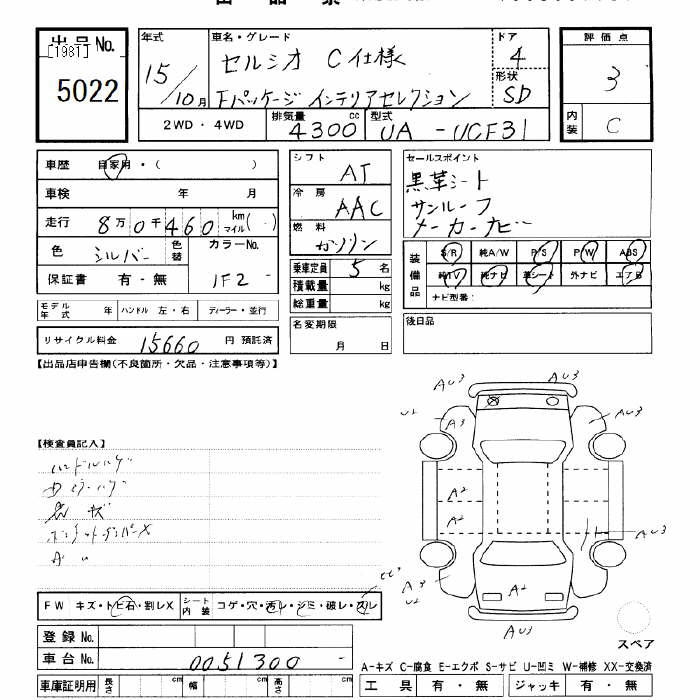 出品No.
[1981]
5022
年式
15/10月
車名・グレード
セルシオ C仕様
Fパッケージ インテリアセレクション
ドア
4
形状
SD
2WD・4WD
排気量
4300 cc
型式
UA - UCF31
評価点
3
内装
C
車歴 自家用・( )
車検 年 月
走行 8万0千460 km マイル( - )
色 シルバー 色替
カラーNo.
1F2 -
保証書 有・無
モデル年式 年 ハンドル 左・右 ディーラー・並行
リサイクル料金 15660 円 預託済
シフト
AT
冷房
AAC
燃料
ガソリン
乗車定員 5 名
積載量 kg
総重量 kg
名変期限
月 日
セールスポイント
黒革シート
サンルーフ
メーカーナビ
装備品
S/R 純A/W P/S P/W ABS
純TV 純ナビ 革シート 外ナビ エアB
ナビ型番:
後日品
【出品店申告欄(不良箇所・欠品・注意事項等)】
【検査員記入】
ハンドルハゲ
AU3 AU3
U2 A3 AU3
A2
A2 AU3
A3
U2 A2
AU3
スペア
FW キズ・トビ石・割レX シート内装 コゲ・穴・汚レ・シミ・破レ・スレ
登録No.
車台No. 0051300 -
車庫証明用 長さ cm 幅 cm 高さ cm
A-キズ C-腐食 E-エクボ S-サビ U-凹ミ W-補修 XX-交換済
工具 有・無 ジャッキ 有・無